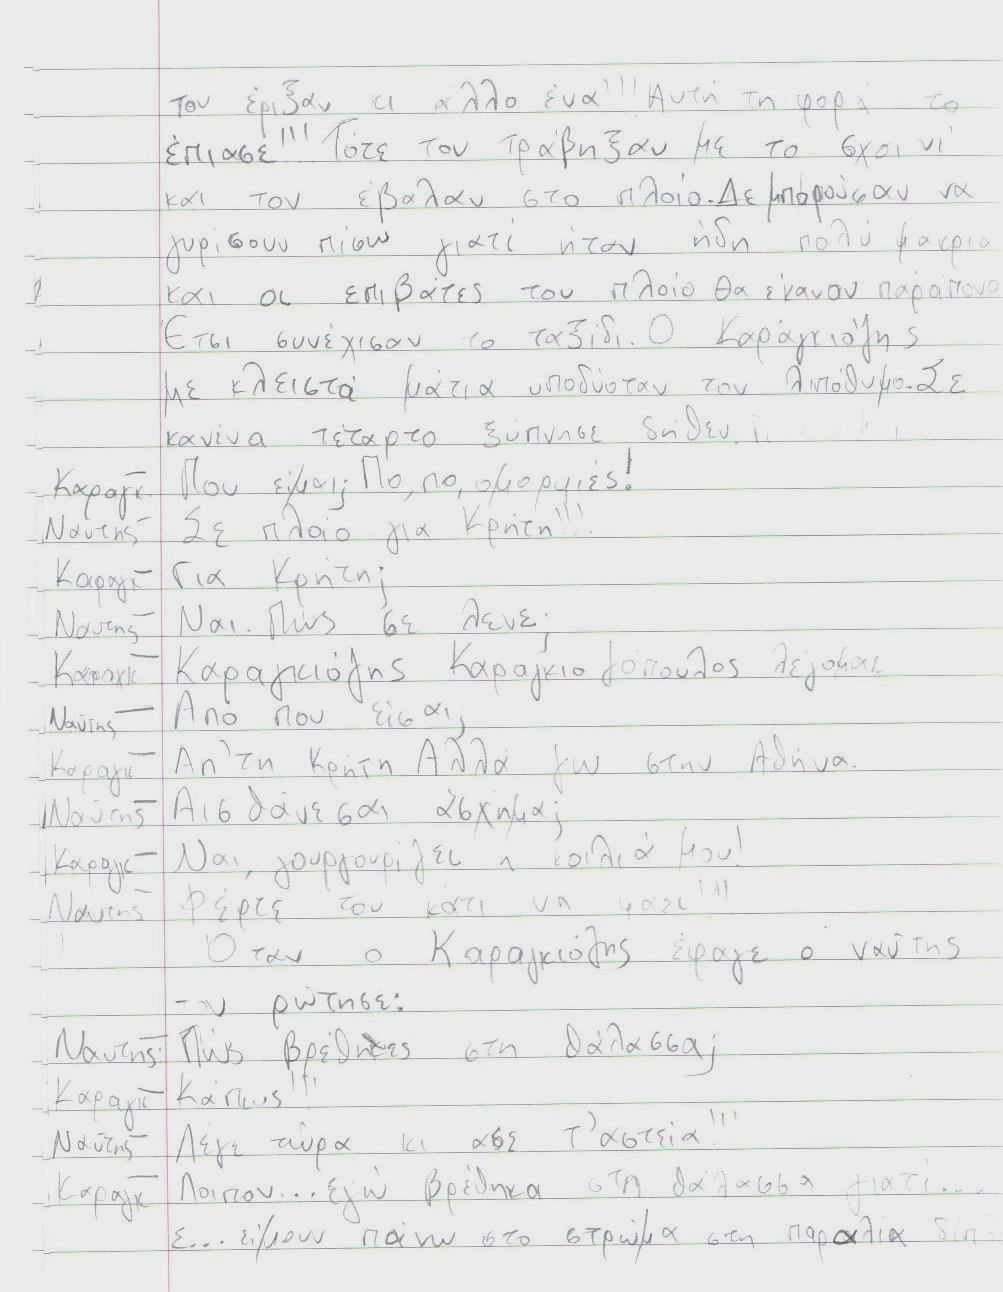 του έριξαν κι άλλο ένα!!! Αυτή τη φορά το
έπιασε!!! Τότε τον τράβηξαν με το σχοινί
και τον έβαλαν στο πλοίο. Δε μπορούσαν να
γυρίσουν πίσω γιατί ήταν ήδη πολύ μακριά
και οι επιβάτες του πλοίο θα έκαναν παράπονο
Έτσι συνέχισαν το ταξίδι. Ο Καραγκιόζης
με κλειστά μάτια υποδύοταν τον λιπόθυμο. Σε
κανένα τέταρτο ξύπνησε δήθεν.
Καραγκ. Που είμαι; Πο, πο, ομορφιές!
Ναύτης- Σε πλοίο για Κρήτη!!!
Καραγκ- Για Κρήτη;
Ναύτης- Ναι. Πώς σε λένε;
Καραγκ- Καραγκιόζης Καραγκιοζόπουλος λέγομαι
Ναύτης- Από που είσαι;
Καραγκ- Απ' τη Κρήτη Αλλά ζω στην Αθήνα.
Ναύτης- Αισθάνεσαι άσχημα;
Καραγκ- Ναι, γουργουρίζει η κοιλιά μου!
Ναύτης- Φέρτε του κάτι να φάει!!!
Όταν ο Καραγκιόζης έφαγε ο ναύτης
τον ρώτησε:
Ναύτης- Πώς βρέθηκες στη θάλασσα;
Καραγκ- Κάπως!!!
Ναύτης- Λέγε τώρα κι άσε τ' αστεία!!!
Καραγκ- Λοιπον... εγώ βρέθηκα στη θάλασσα γιατί....
ε... είμουν πάνω στο στρώμα στη παραλία